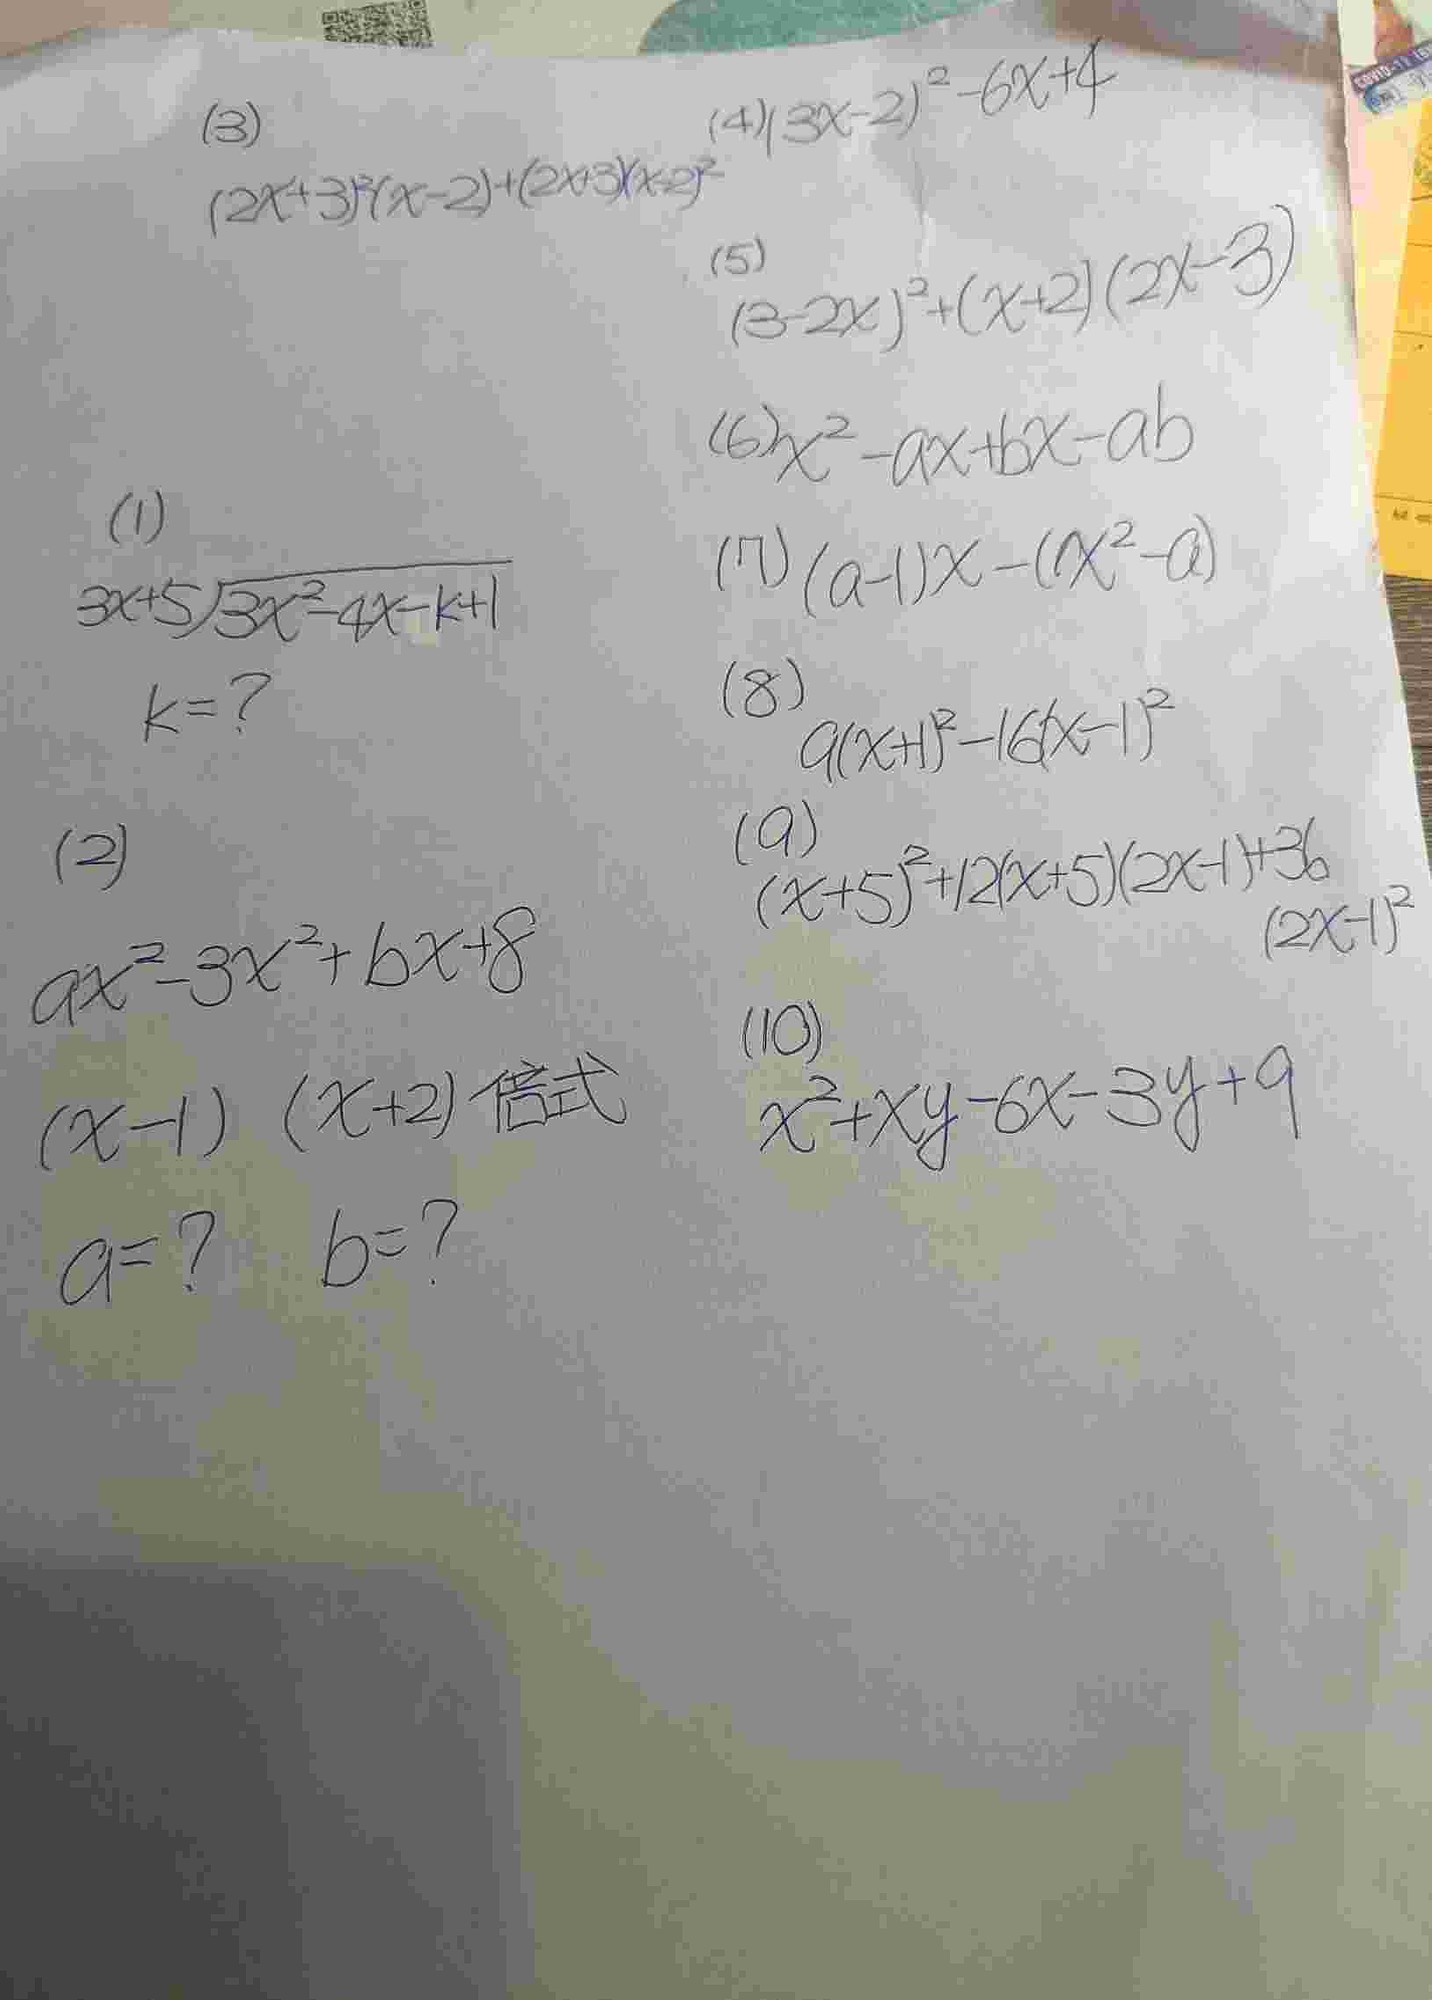 (3)
(2x+3)²(x-2)+(2x+3)(x-2)²
(4)(3x-2)²-6x+4
(5)
(3-2x)²+(x+2)(2x-3)
(6)x²-ax+bx-ab
(7)(a-1)x-(x²-a)
(8)
9(x+1)²-16(x-1)²
(9)
(x+5)²+12(x+5)(2x-1)+36
(2x-1)²
(10)
x²+xy-6x-3y+9
(1)
3x+5)3x²-4x-k+1
k=?
(2)
ax²-3x²+bx+8
(x-1) (x+2)倍式
a=? b=?
COVID-19